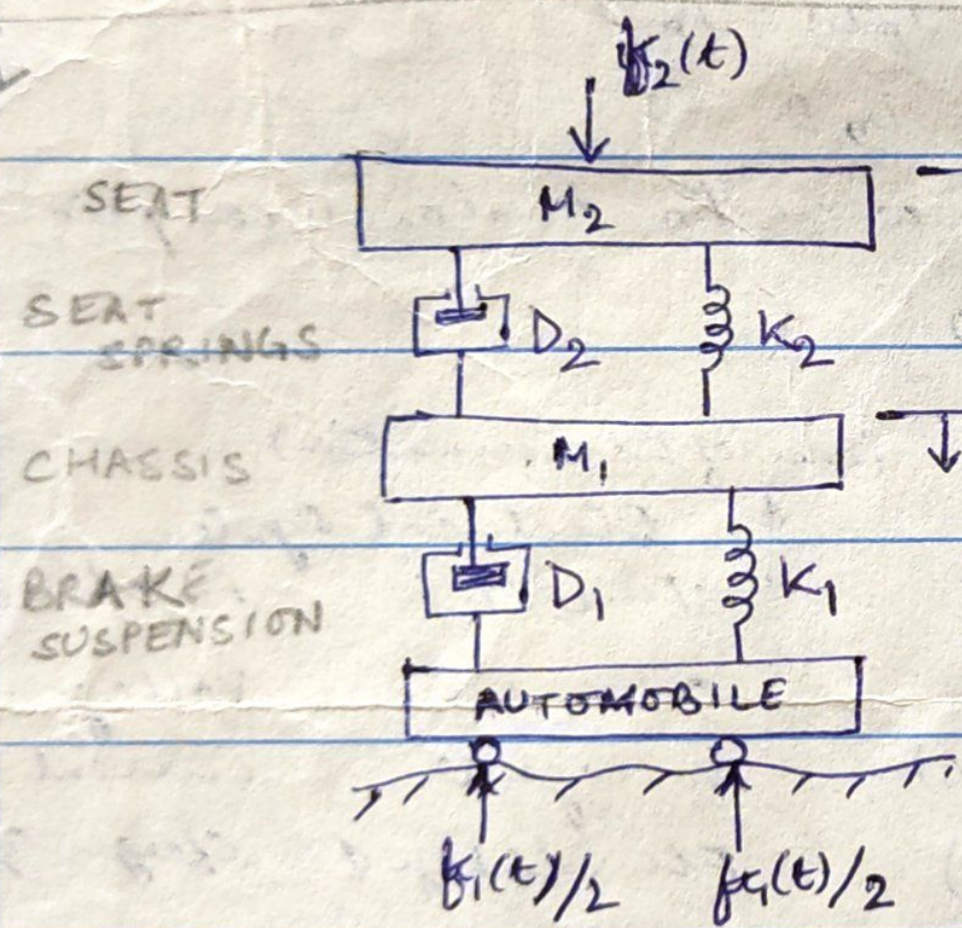 f₂(t)
SEAT M₂
SEAT
SPRINGS D₂ K₂
CHASSIS M₁
BRAKE
SUSPENSION D₁ K₁
AUTOMOBILE
f₁(t)/2 f₁(t)/2